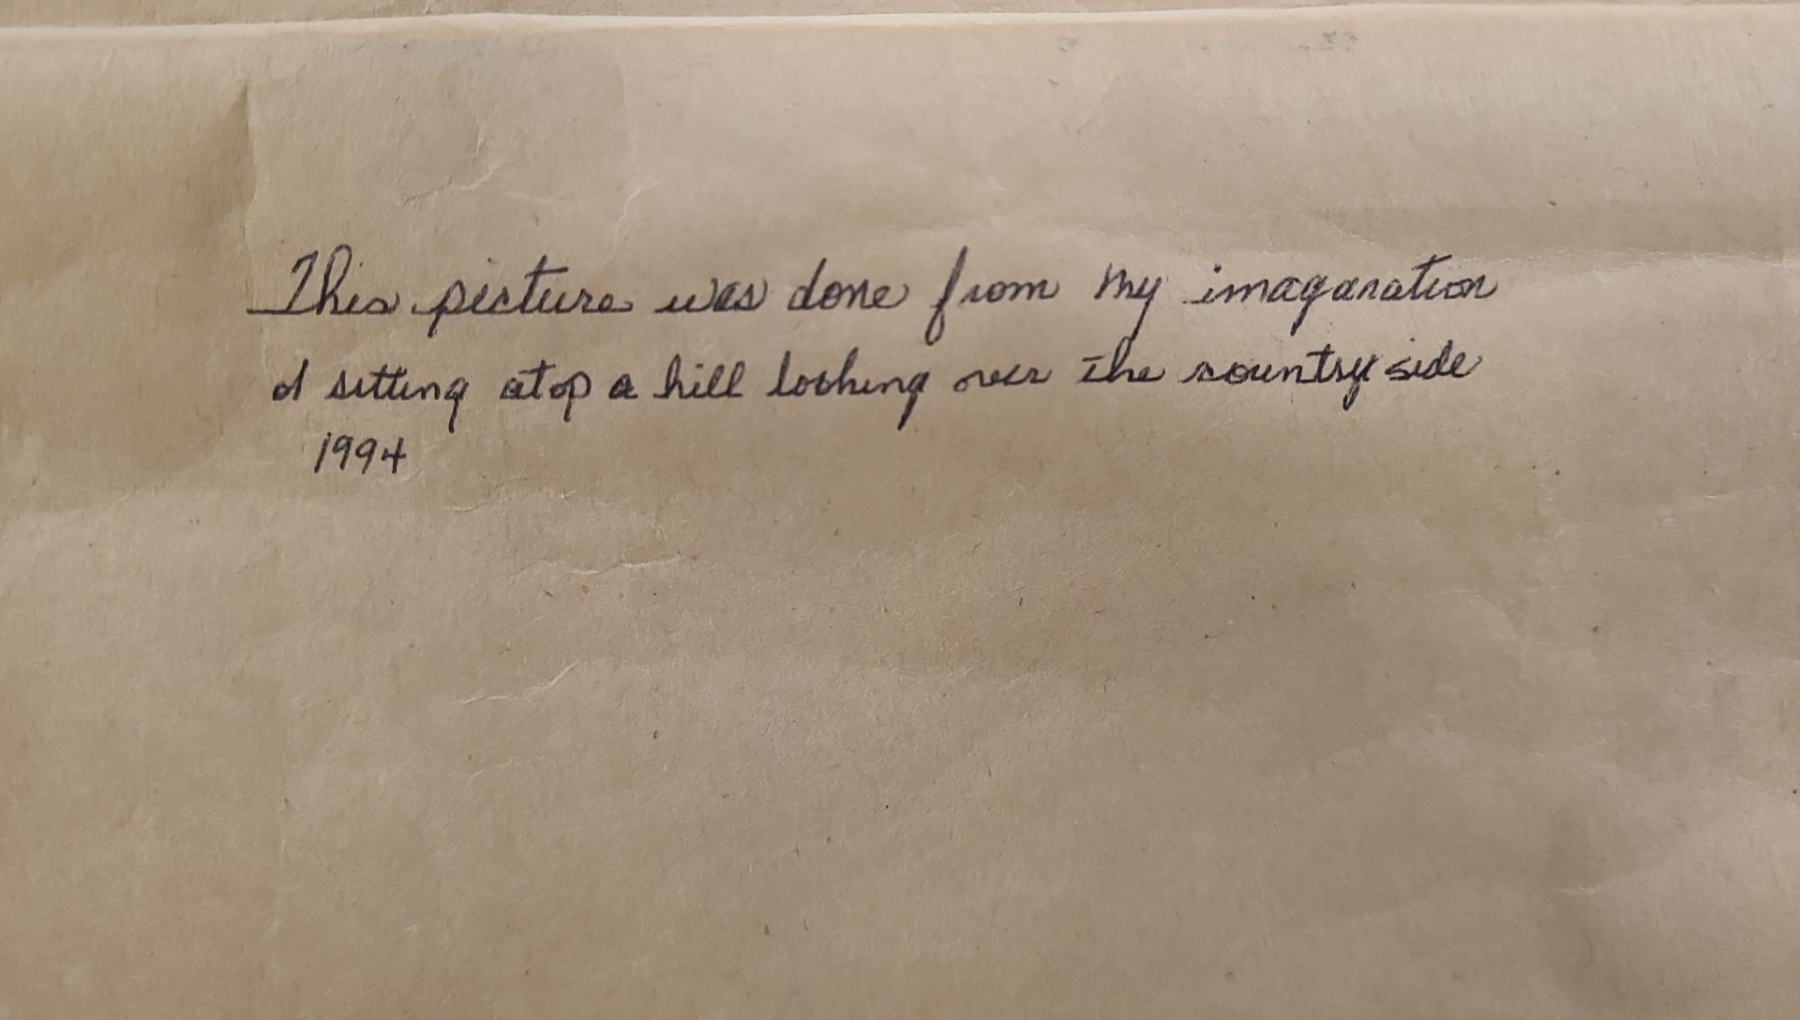 This picture was done from my imaganation
of sitting atop a hill looking over the countryside
1994